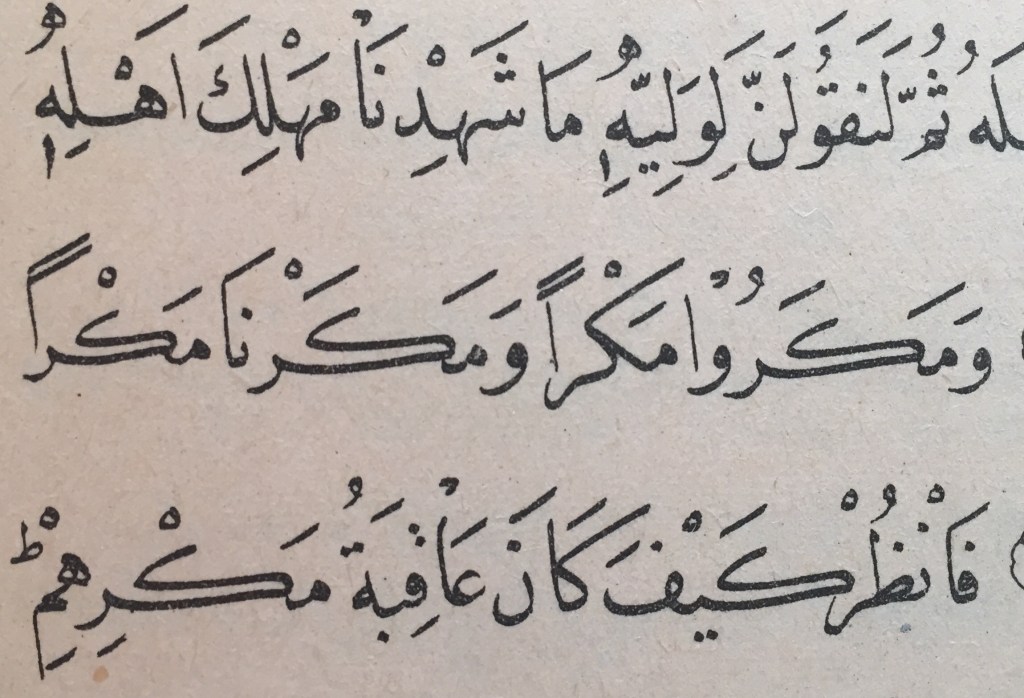 لَهُ ثُمَّ لَنَقُولَنَّ لِوَلِيِّهِ مَا شَهِدْنَا مَهْلِكَ اَهْلِهِ
وَمَكَرُوْا مَكْراً وَمَكَرْنَا مَكْراً
فَانْظُرْ كَيْفَ كَانَ عَاقِبَةُ مَكْرِهِمْ ط